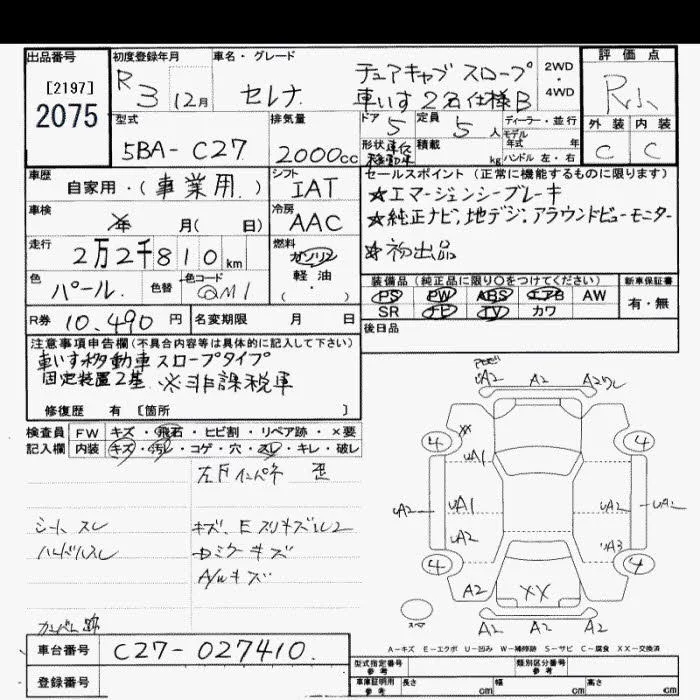 出品番号
[2197]
2075
初度登録年月
R 3 12月
車名・グレード
セレナ
チェアキャブ スロープ
車いす2名仕様B
2WD
・
4WD
評価点
外装 内装
C C
型式
5BA-C27
排気量
2000cc
ドア 5
定員 5人
ディーラー・並行
モデル
年式 年
形状
積載 kg
ハンドル 左・右
車歴
自家用・(事業用)
シフト
IAT
セールスポイント(正常に機能するものに限ります)
★エマージェンシーブレーキ
★純正ナビ,地デジ,アラウンドビューモニター
★初出品
車検
年 月( 日)
冷房
AAC
走行
2万2千810km
燃料
ガソリン
軽油
( ・ )
色
パール
色替
色コード
QM1
装備品(純正品に限り○をつけてください)
PS PW ABS エアB AW
SR ナビ TV カワ
新車保証書
有・無
R券 10,490円
名変期限 月 日
後日品
注意事項申告欄(不具合内容等は具体的に記入して下さい)
車いす移動車スロープタイプ
固定装置2基 ※非課税車
修復歴 有 [箇所 ]
検査員
記入欄
FW キズ・飛石・ヒビ割・リペア跡・×要
内装 キズ・汚れ・コゲ・穴・スレ・キレ・破レ
左下インパネ 歪
シートスレ
ハンドルスレ
A/Wキズ
UA2 A2 A2ワレ
4 XX 4
UA1
UA2 UA1 UA2 UA2
UA2 UA3
4 4
A2 XX A2
スペア
A2 A2 A2
A-キズ E-エクボ U-凹み W-補修跡 S-サビ C-腐食 XX-交換済
車台番号 C27-027410
登録番号
型式指定番号
参考
類別区分番号
参考
車庫証明用
参考
長さ cm 幅 cm 高さ cm